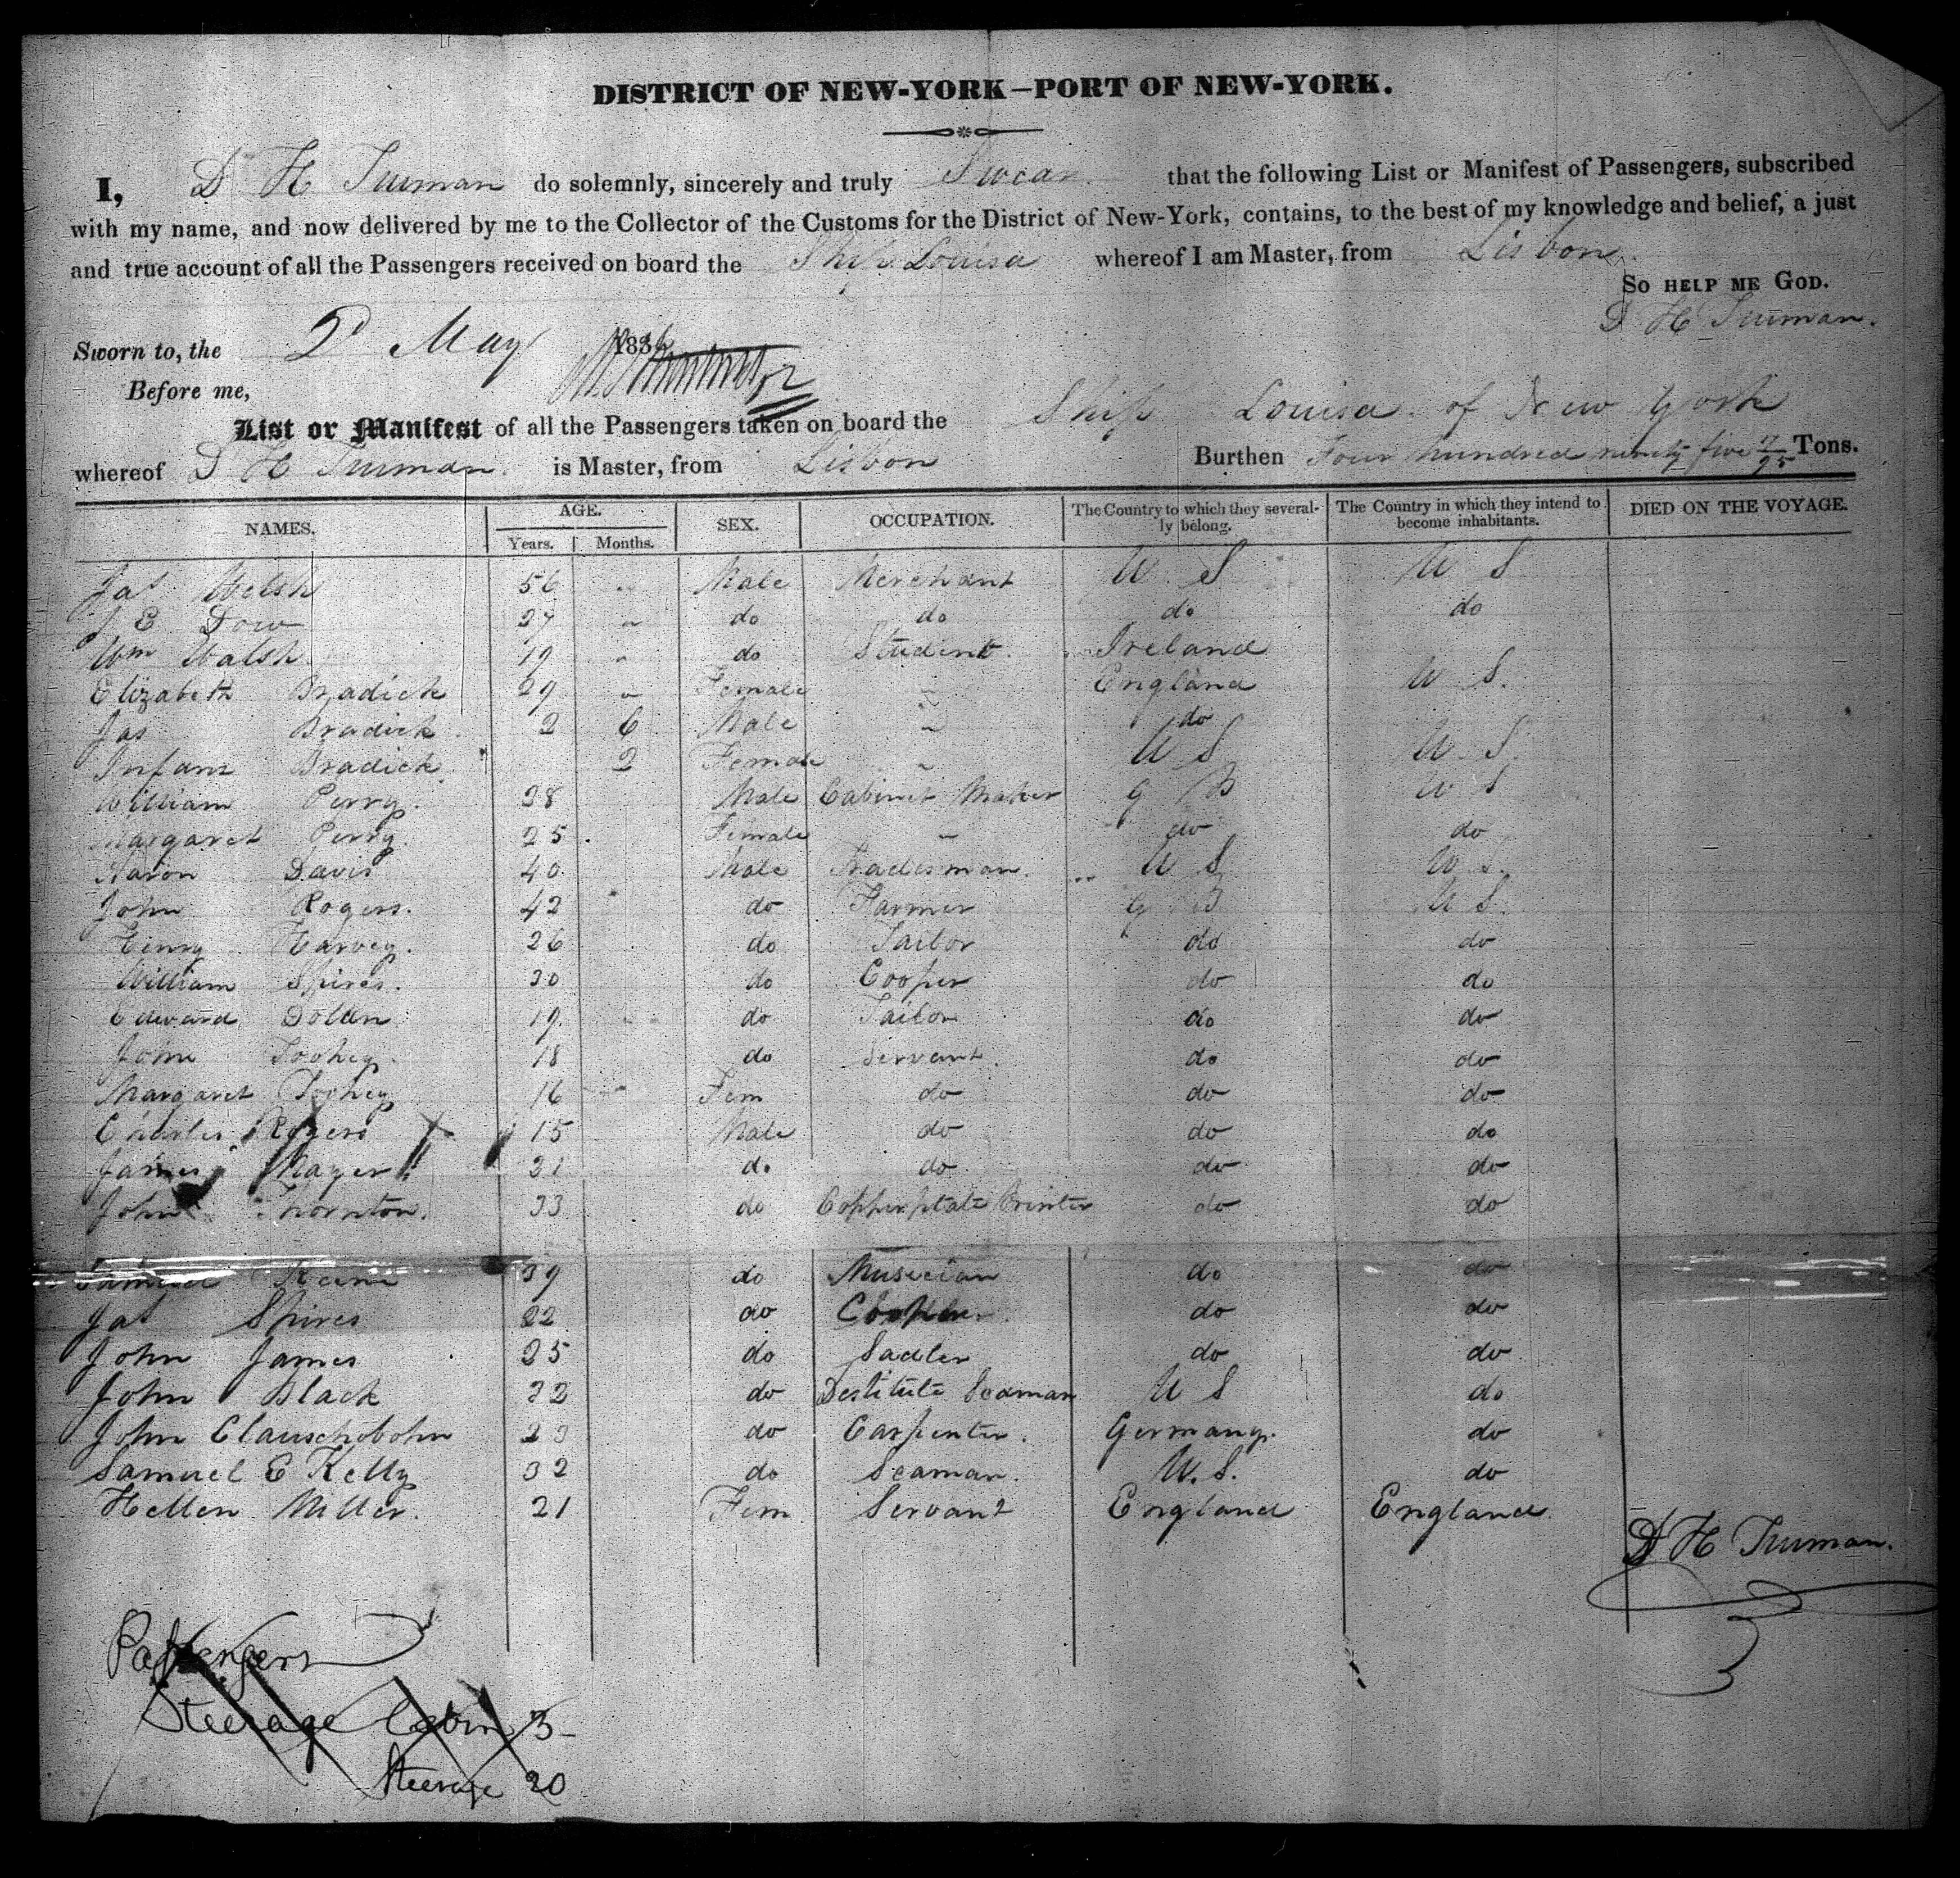 DISTRICT OF NEW-YORK—PORT OF NEW-YORK.
I, D H Truman do solemnly, sincerely and truly Swear that the following List or Manifest of Passengers, subscribed
with my name, and now delivered by me to the Collector of the Customs for the District of New-York, contains, to the best of my knowledge and belief, a just
and true account of all the Passengers received on board the Ship Louisa whereof I am Master, from Lisbon
So HELP ME GOD.
D H Truman.
Sworn to, the 2d May 1836
Before me,
List or Manifest of all the Passengers taken on board the Ship Louisa of New York
whereof D H Truman is Master, from Lisbon Burthen Four hundred ninety five 17/95 Tons.
NAMES. AGE. SEX. OCCUPATION. The Country to which they several- The Country in which they intend to DIED ON THE VOYAGE.
Years. Months. ly belong. become inhabitants.
Jas Welsh 56 " Male Merchant U S U S
J E Dow 27 " do do do do
Wm Walsh 19 " do Student Ireland
Elizabeth Bradick 29 " Female " England U S.
Jas Bradick 2 6 Male " do
Infant Bradick 2 Female " U S U S.
William Perry 28 Male Cabinet Maker G B U S
Margaret Perry 25 Female " do do
Aaron Davis 40 Male Tradesman U S U S.
John Rogers. 42 do Farmer G B U S.
Henry Harvey. 26 do Tailor do do
William Spires. 30 do Cooper do do
Edward Dolan 19 do Tailor do do
John Toohey. 18 do Servant. do do
Margaret Toohey 16 Fem do do do
Charles Rogers 15 Male do do do
James Mayer 21 do do do do
John Thornton. 33 do Copperplate Printer do do
Samuel 39 do Musician do do
Jas Spires 22 do do do
John James 25 do Sadler do do
John Black 22 do Destitute Seaman U S do
John Clauschobohn 23 do Carpenter. Germany. do
Samuel E Kelly 32 do Seaman. U.S. do
Hellen Miller. 21 Fem Servant England England
D H Truman.
Passengers
Steerage Cabin 5
Steerage 20